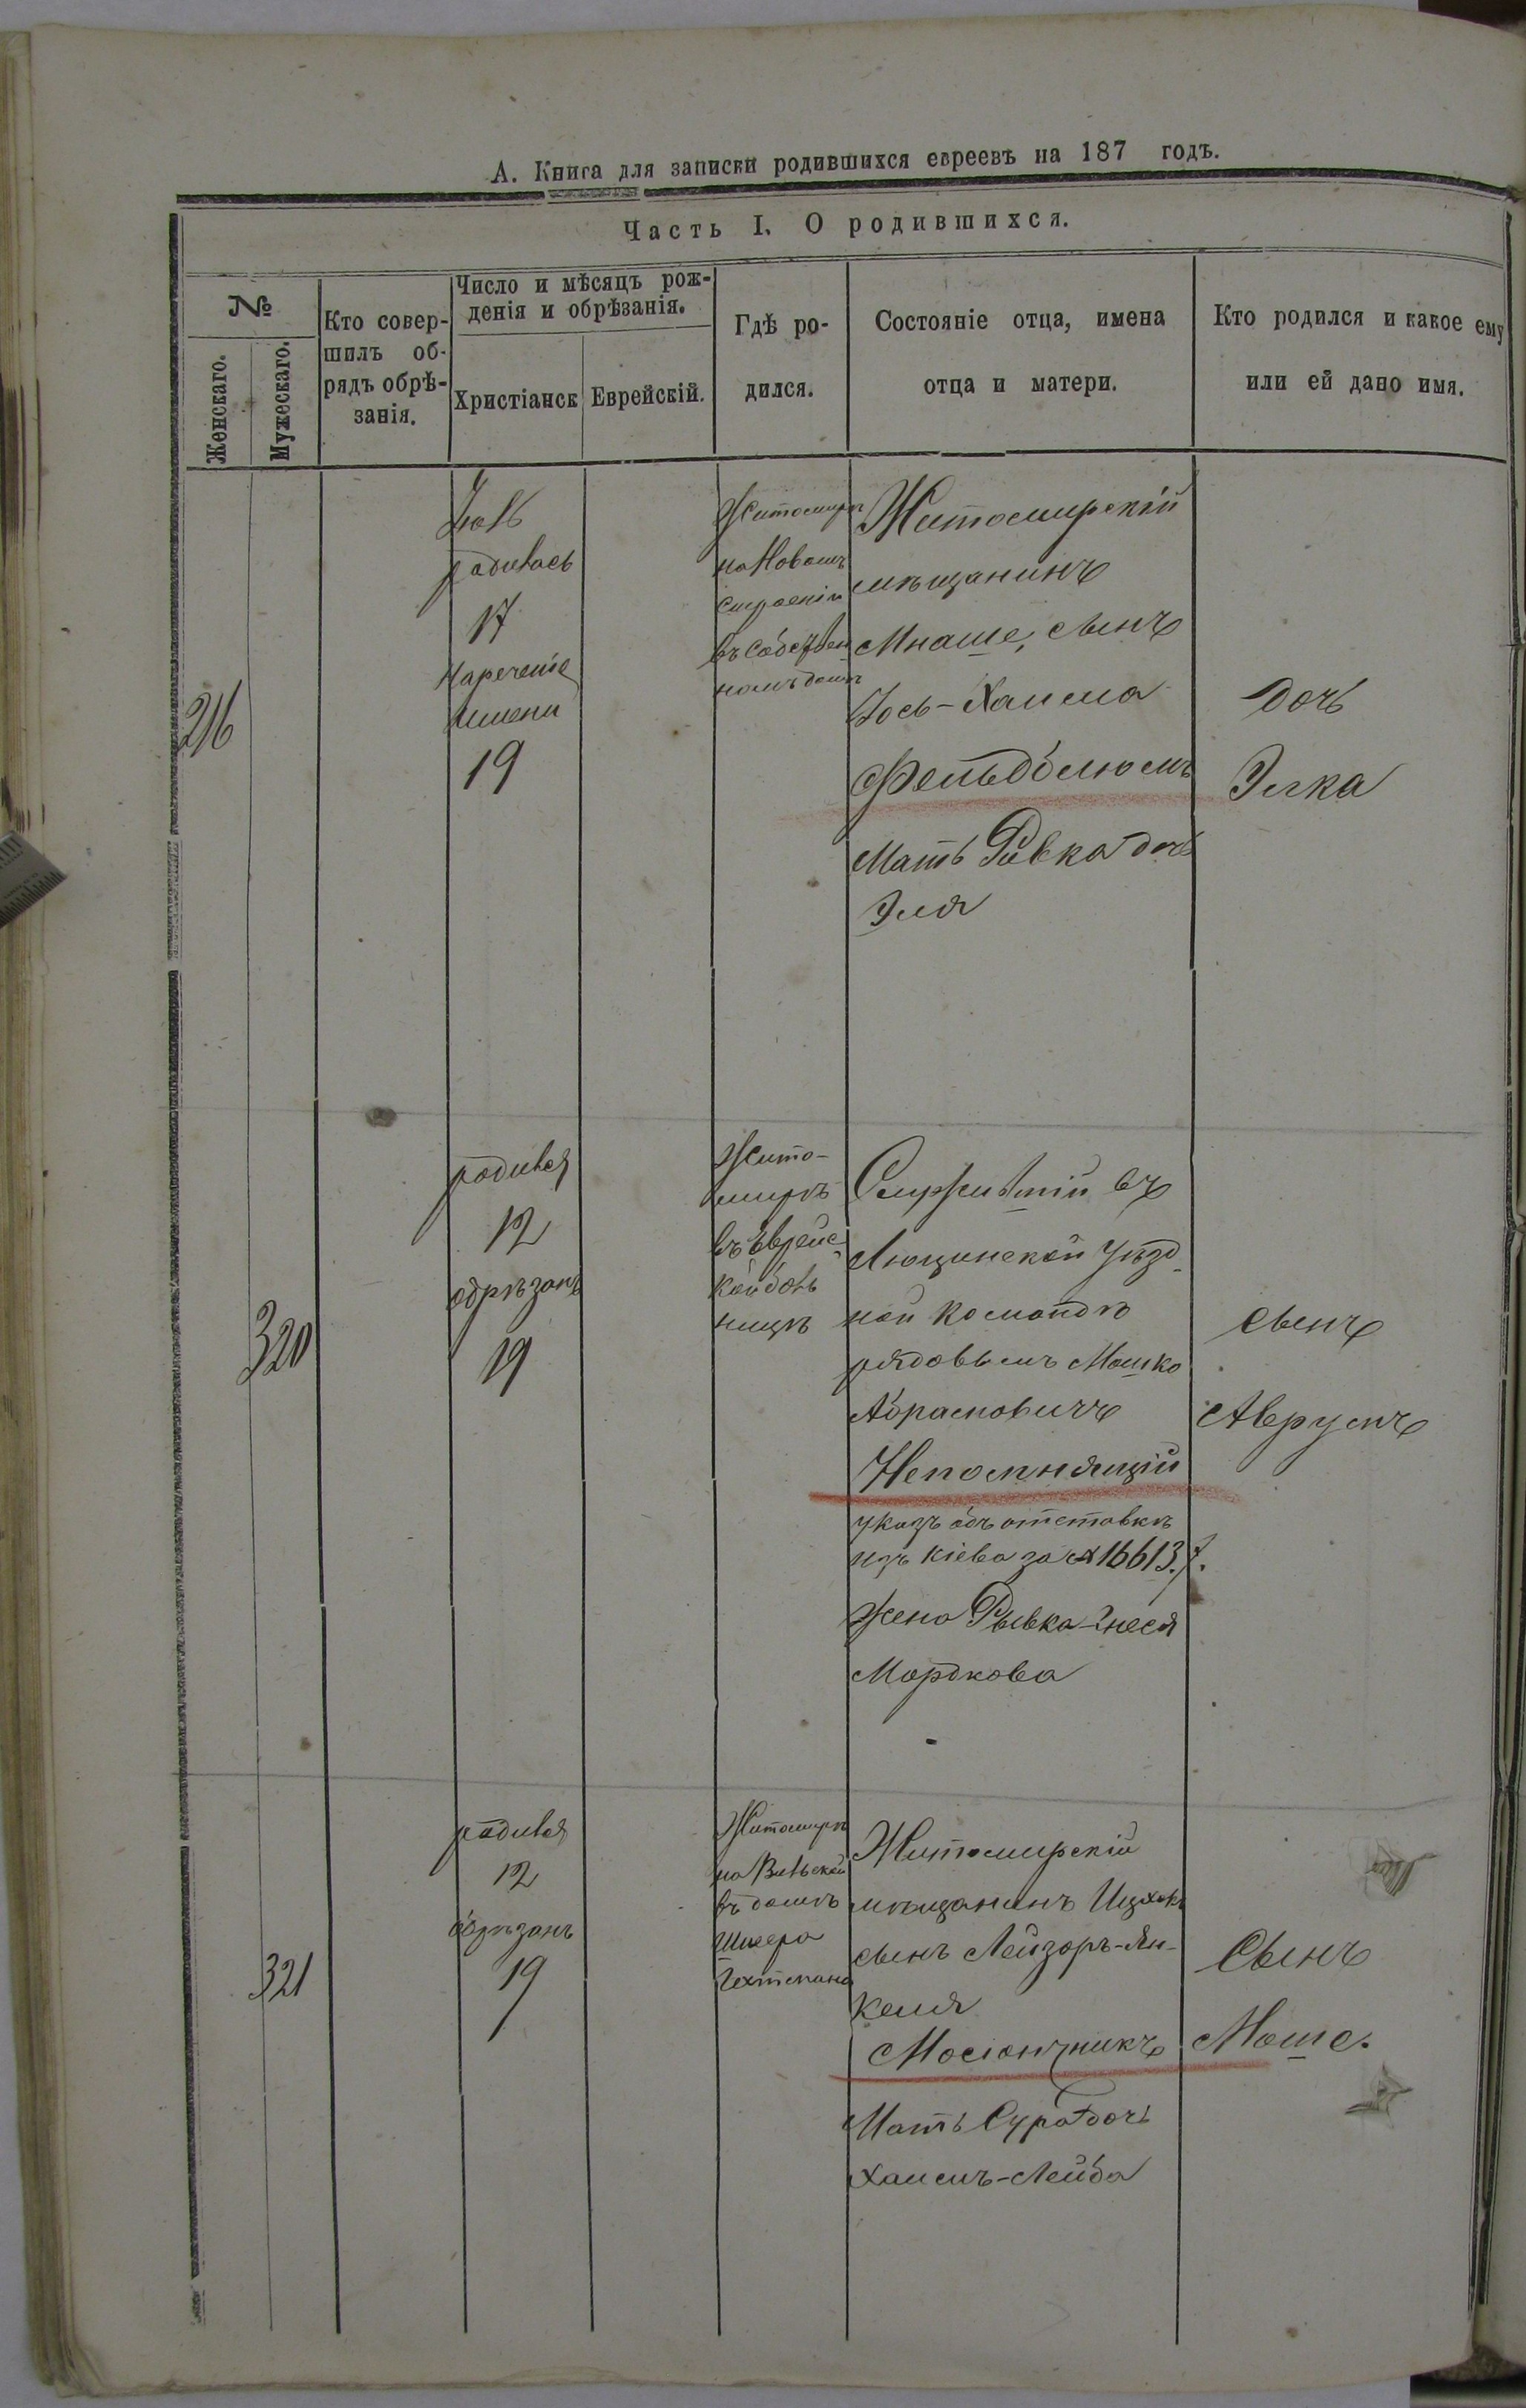 А. Книга для записки родившихся евреевъ на 187 годъ.
Часть I. О родившихся.
№
Женскаго.
Мужескаго.
Кто совер-
шилъ об-
рядъ обрѣ-
занія.
Число и мѣсяцъ рож-
денія и обрѣзанія.
Христіанск
Еврейскій.
Гдѣ ро-
дился.
Состояніе отца, имена
отца и матери.
Кто родился и какое ему
или ей дано имя.
216
родилась
17
Наречение
имени
19
Житомиръ
на Новомъ
строеніи
въ собствен
номъ домѣ
Житомирскій
мѣщанинъ
Мнаше, сынъ
Іось-Хаима
Фельдблюмъ
Мать Ривка дочь
Эля
дочь
Элка
320
родился
12
обрѣзанъ
19
Жито-
мирѣ
въ Еврейс-
кой боль
ницѣ
Служившій въ
Люцинской уѣзд-
ной командѣ
рядовымъ Мошко
Абрамовичъ
Непомнящій
указъ объ отставкѣ
изъ Кіева за № 16613.
жена Рывка-Гнеся
Мордкова
сынъ
Аврумъ
321
родился
12
обрѣзанъ
19
Житомирѣ
на Вильской
въ домѣ
Шмера
Гехтмана
Житомирскій
мѣщанинъ Ицхокъ
сынъ Лейзоръ-Ян-
келя
Мосіонзникъ
Мать Сура дочь
Хаимъ-Лейба
Сынъ
Моше.